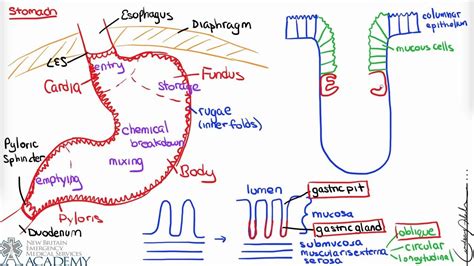 Stomach
Esophagus
Diaphragm
LES
entry
Cardia
Fundus
storage
rugae
(inner folds)
chemical
breakdown
mixing
Body
Pyloric
Sphincter
emptying
Pyloris
Duodenum
columnar
epithelium
mucous cells
lumen
gastric pit
mucosa
gastric gland
submucosa
muscularis externa
serosa
oblique
circular
longitudinal
NEW BRITAIN
EMERGENCY
MEDICAL SERVICES
ACADEMY